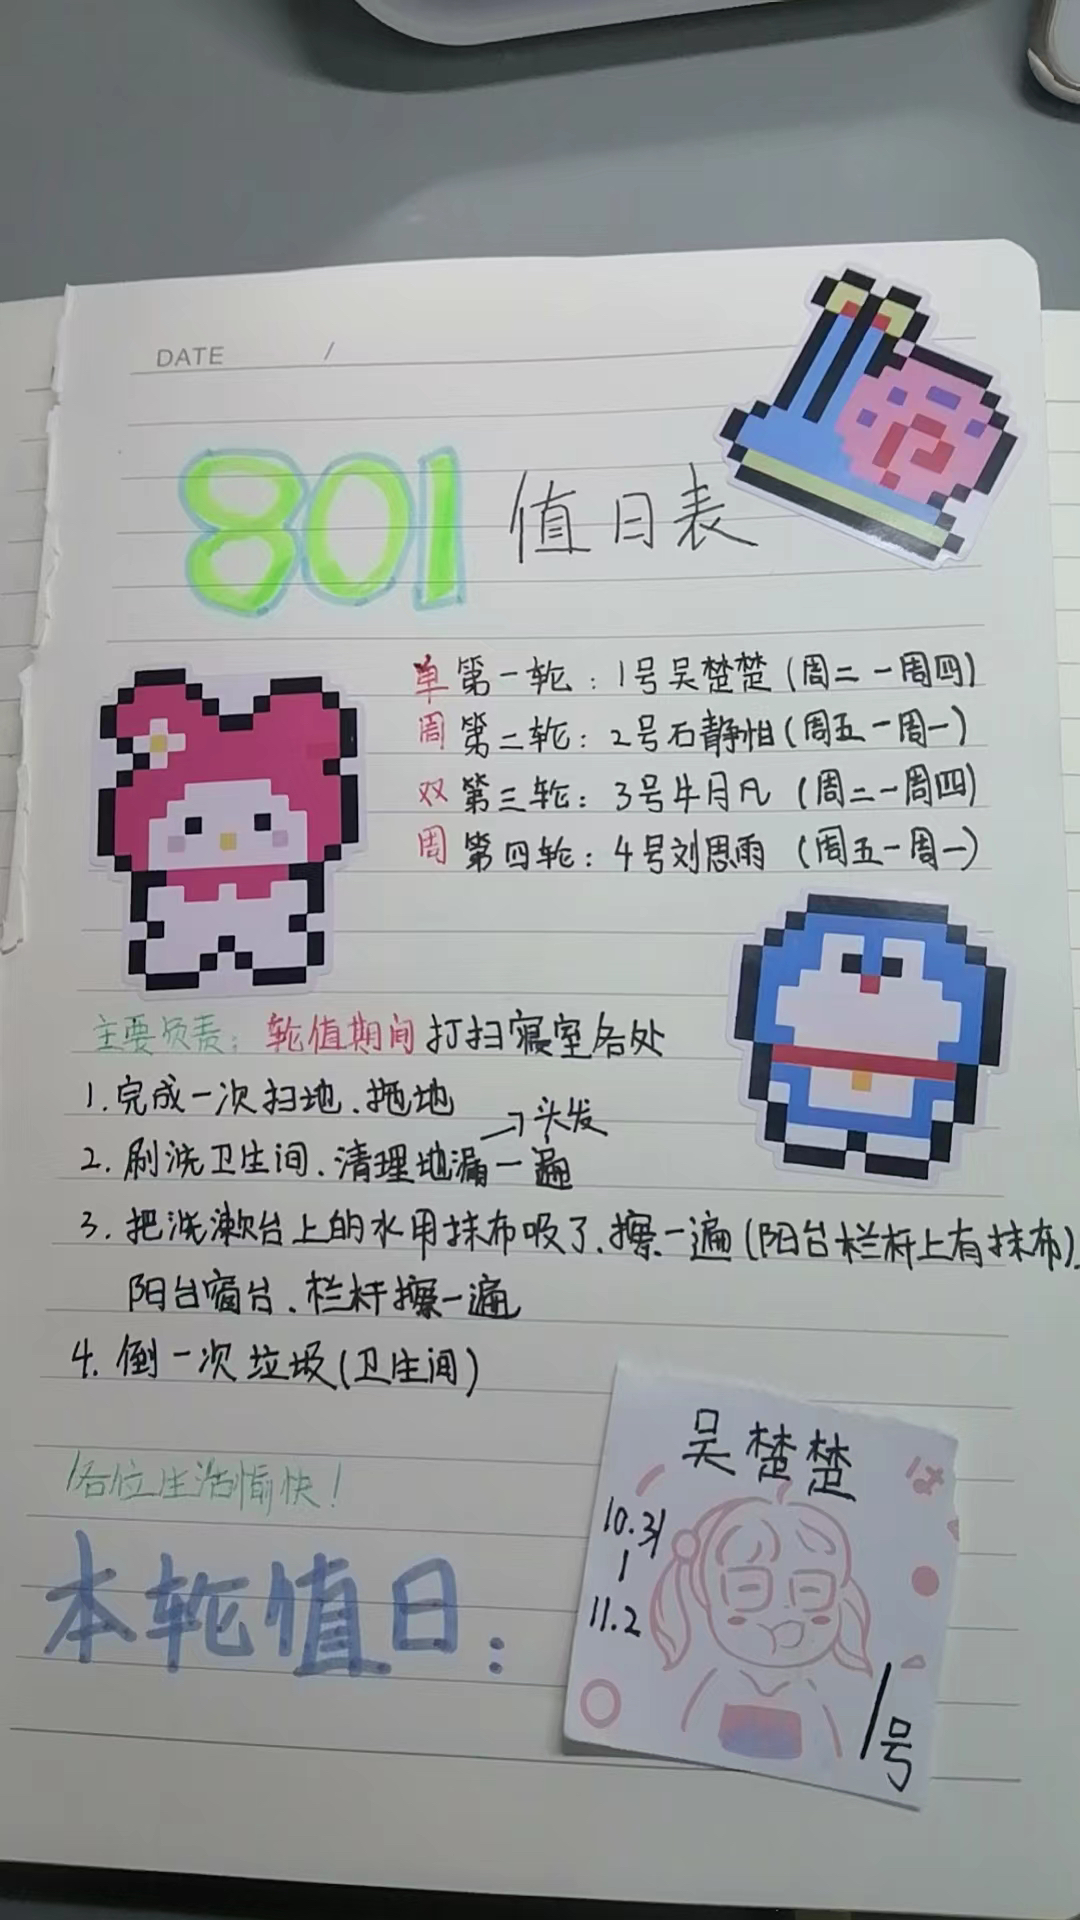 DATE /
801 值日表
单 第一轮：1号吴楚楚(周二一周四)
周 第二轮：2号石静怡(周五一周一)
双 第三轮：3号牛月凡(周二一周四)
周 第四轮：4号刘思雨(周五一周一)
主要负责：轮值期间打扫寝室各处
1.完成一次扫地、拖地
→头发
2.刷洗卫生间、清理地漏一遍
3.把洗漱台上的水用抹布吸了、擦一遍(阳台栏杆上有抹布).
阳台窗台、栏杆擦一遍
4.倒一次垃圾(卫生间)
各位生活愉快！
本轮值日：
吴楚楚
10.31
|
11.2
1号